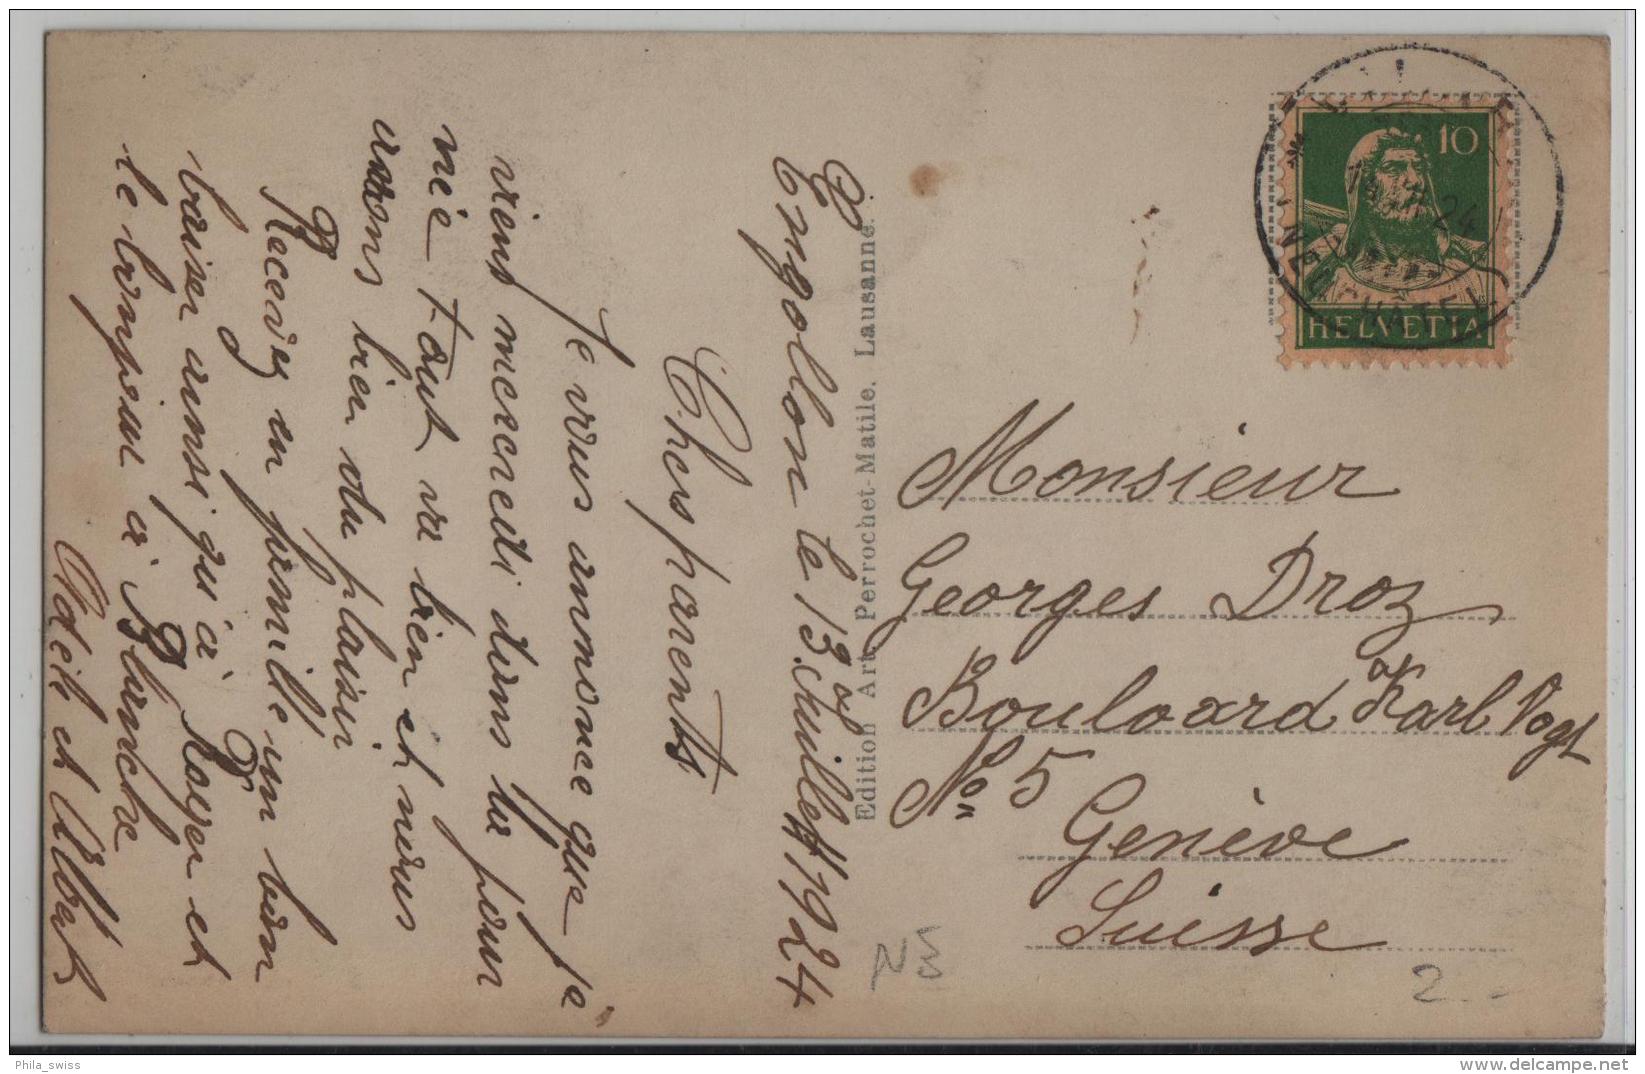 Engollon le 13 Juillet 1924
Chers parents
Je vous annonce que je
viens mercredi dans la pour
née tout va bien et nous
avons bien du plaisir
Recevez en famille un bon
baiser ainsi qu'à Roger et
le bonjour à Blanche
Odeil et Albert
Edition Art. Perrochet-Matile, Lausanne.
10
HELVETIA
24
NEUCHATEL
Monsieur
Georges Droz
Boulvard Karl Vogt
No 5
Genève
Suisse
NE
2.-
Phila_swiss
www.delcampe.net